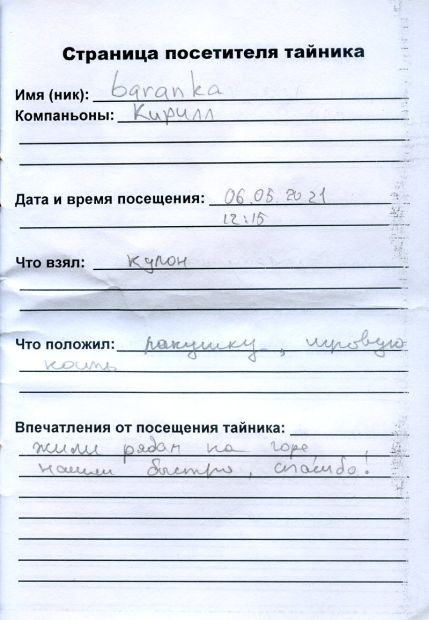 Страница посетителя тайника
Имя (ник): baranka
Компаньоны: Кирилл
Дата и время посещения: 06.05.2021
12:15
Что взял: кулон
Что положил: ракушку, игровую
кость
Впечатления от посещения тайника:
жили рядом на горе
нашли быстро, спасибо!